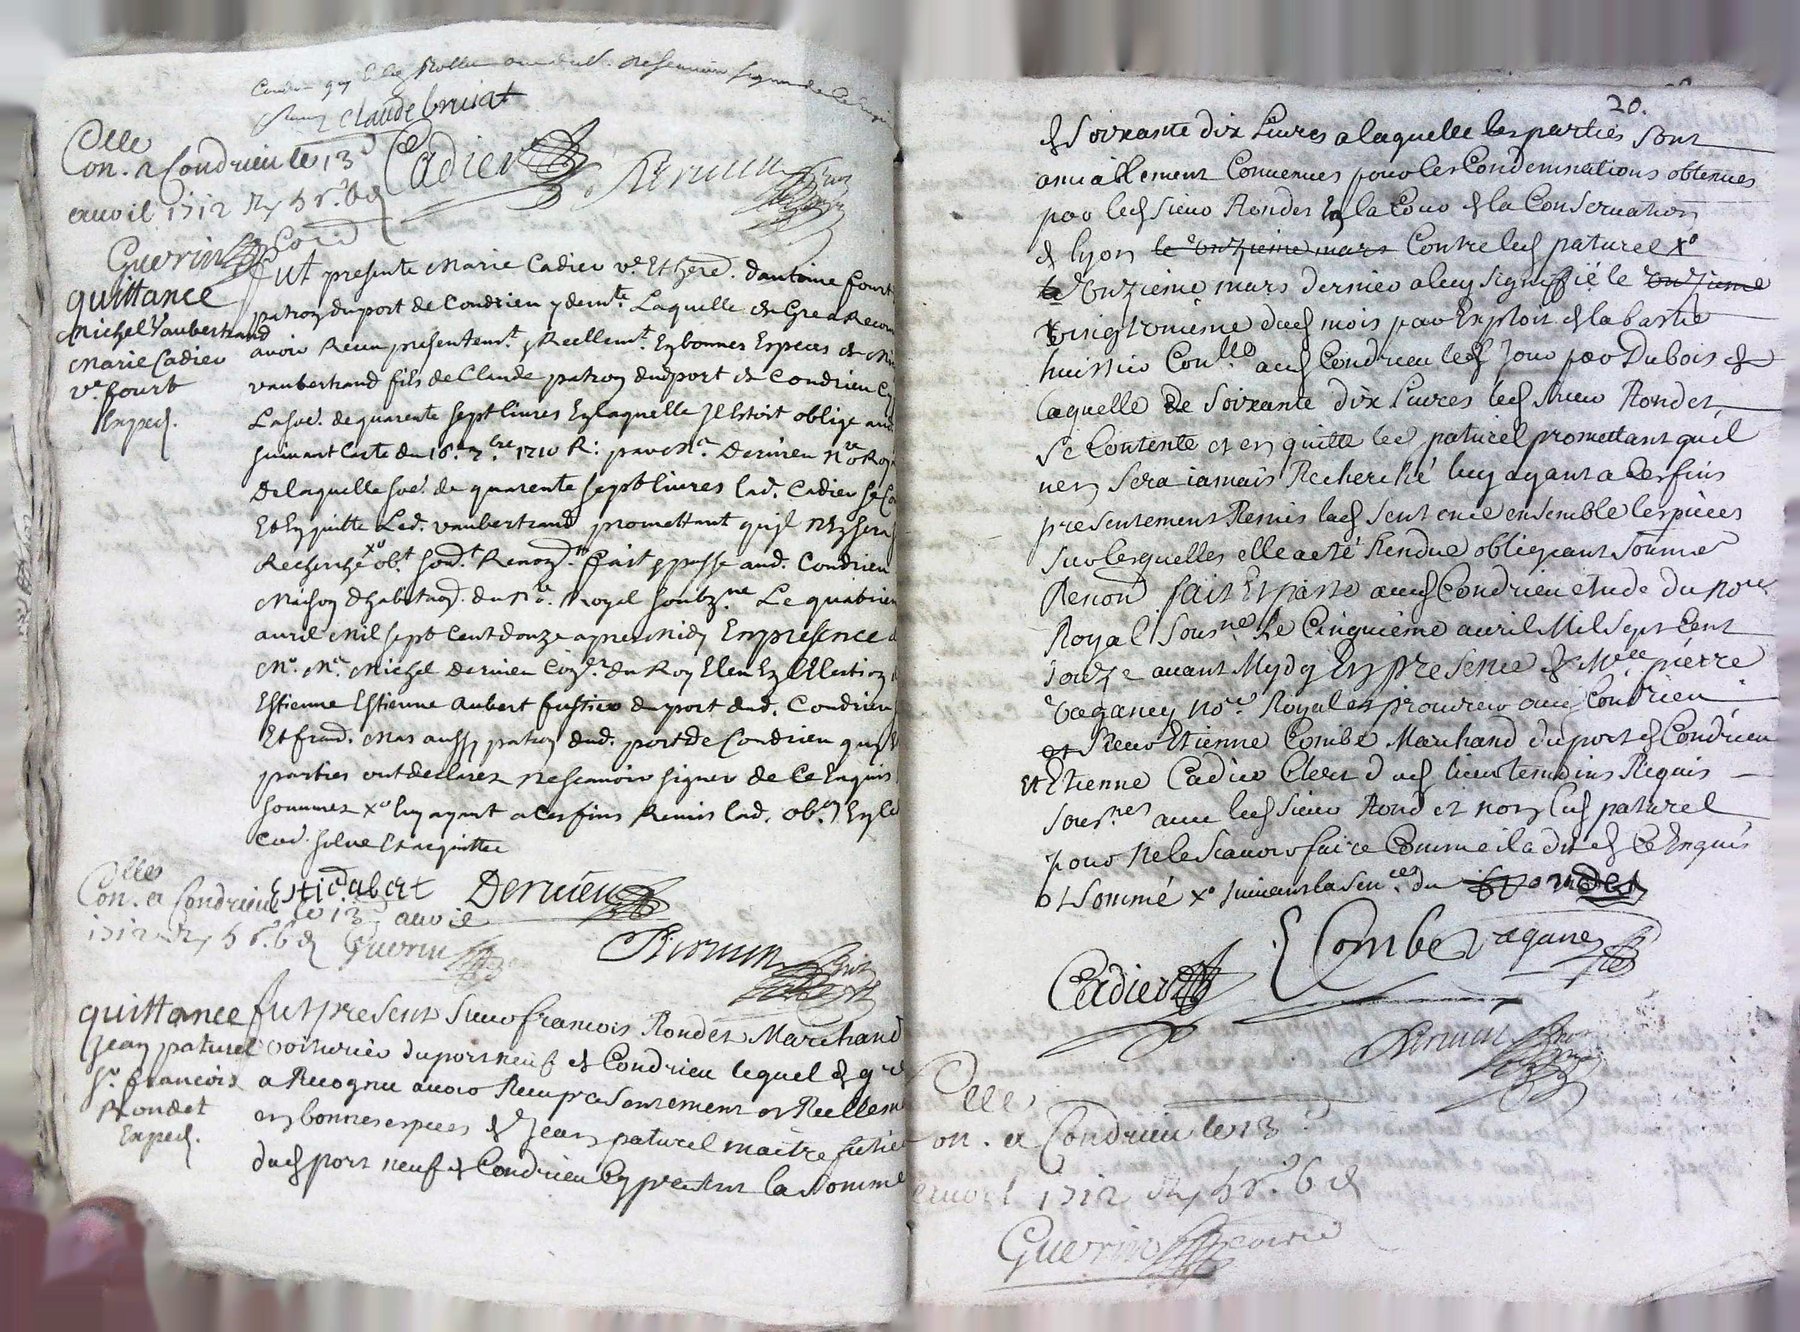 claude brirat
Colle
Con. a Condrieu le 13e
auvril 1712 Rx h s. 6 d
Cadier
Guerin
quittance
Michel Vaubertrand
Marie Cadier
ve. fourt
Exped.
fut presente Marie Cadier ve. Et hered. dantoine fourt
patron du port de Condrieu y demte. Laquelle de Gre a Recon
avoir Receu presentemt. & Reellemt. En bonnes Especes de Mi
vaubertrand fils de Claude patron dud port de Condrieu Cy
La soe. de quarente sept livres En laquelle Il Estoit oblige au
suivant lacte du 16e. 7bre. 1710 R: par Me. Dervieu nore Roy
De laquelle soe. de quarente sept livres lad. Cadier se Co
Et En quitte Led. vaubertrand promettant quil n'En sera
Recherché xo obt. soub. Renon. fait & passe aud. Condrieu
Maison dhabitaon. du no. Royal soubzne. Le quatrieme
auril Mil sept Cent douze apres Midy En presence d
Mo. Me. Michel dervieu Conser. du Roy Eleu En l'Election
Estienne Estienne aubert fustier du port dud. Condrieu
Et frand. Mas aussy patron dud. port de Condrieu qui
parties ont declarez ne scavoir signer de Ce Enquis
sommez xo luy ayant a Ces fins Remis lad. obon En
Coe. solue Et acquittee
Estie aubert Dervieu
Colles
Con. a Condrieu le 13e auvril
1712 Rx h s. 6 d Guerin
quittance
Jean paturel
Sr. francois
Rondet
Exped.
fut present Sieur francois Rondet Marchand
voiturier du port neuf de Condrieu lequel de gre
a Recognu avoir Receu presentement et Reellem
en bonnes especes de Jean paturel maitre futie
dud port neuf de Condrieu Cy present la somme
20.
de soixante dix Livres a laquelle les parties sont
amiablement Convenues pour les Condemnations obtenues
par led sieur Rondet En la Cour de la Conservation
de lyon le onzieme mars Contre led paturel xo
le onzieme mars dernier a luy signiffié le onzieme
vingtroisieme dud mois par Exploit de labastie
huissier Conlle aud Condrieu led Jour par Dubois de
laquelle de soixante dix Livres led Sieur Rondet
se Contente et en quitte led paturel promettant quil
nen sera iamais Recherché luy ayant a Ces fins
presentement Remis lad sentence ensemble les pieces
sur lesquelles elle a eté Rendue obligeant soume
Renon fait Et passé aud Condrieu etude du nore
Royal sousne. Le Cinquieme auril Mil sept Cent
douze avant Mydy En presence de Mtre pierre
vaganey nore. Royal et procureur aud Condrieu
et sieur Etienne Combe Marchand du port de Condrieu
et Etienne Cadier Clerc dud lieu temoins Requis
sousnes avec led sieur Rondet et non led paturel
pour ne le scavoir faire Comme il a dit de Ce Enquis
et sommé xo suivant la sence. du Rondet
E Combe vaganey
Cadier
Colle
Con. a Condrieu le 13e
auvril 1712 Rx h s. 6 d
Guerin